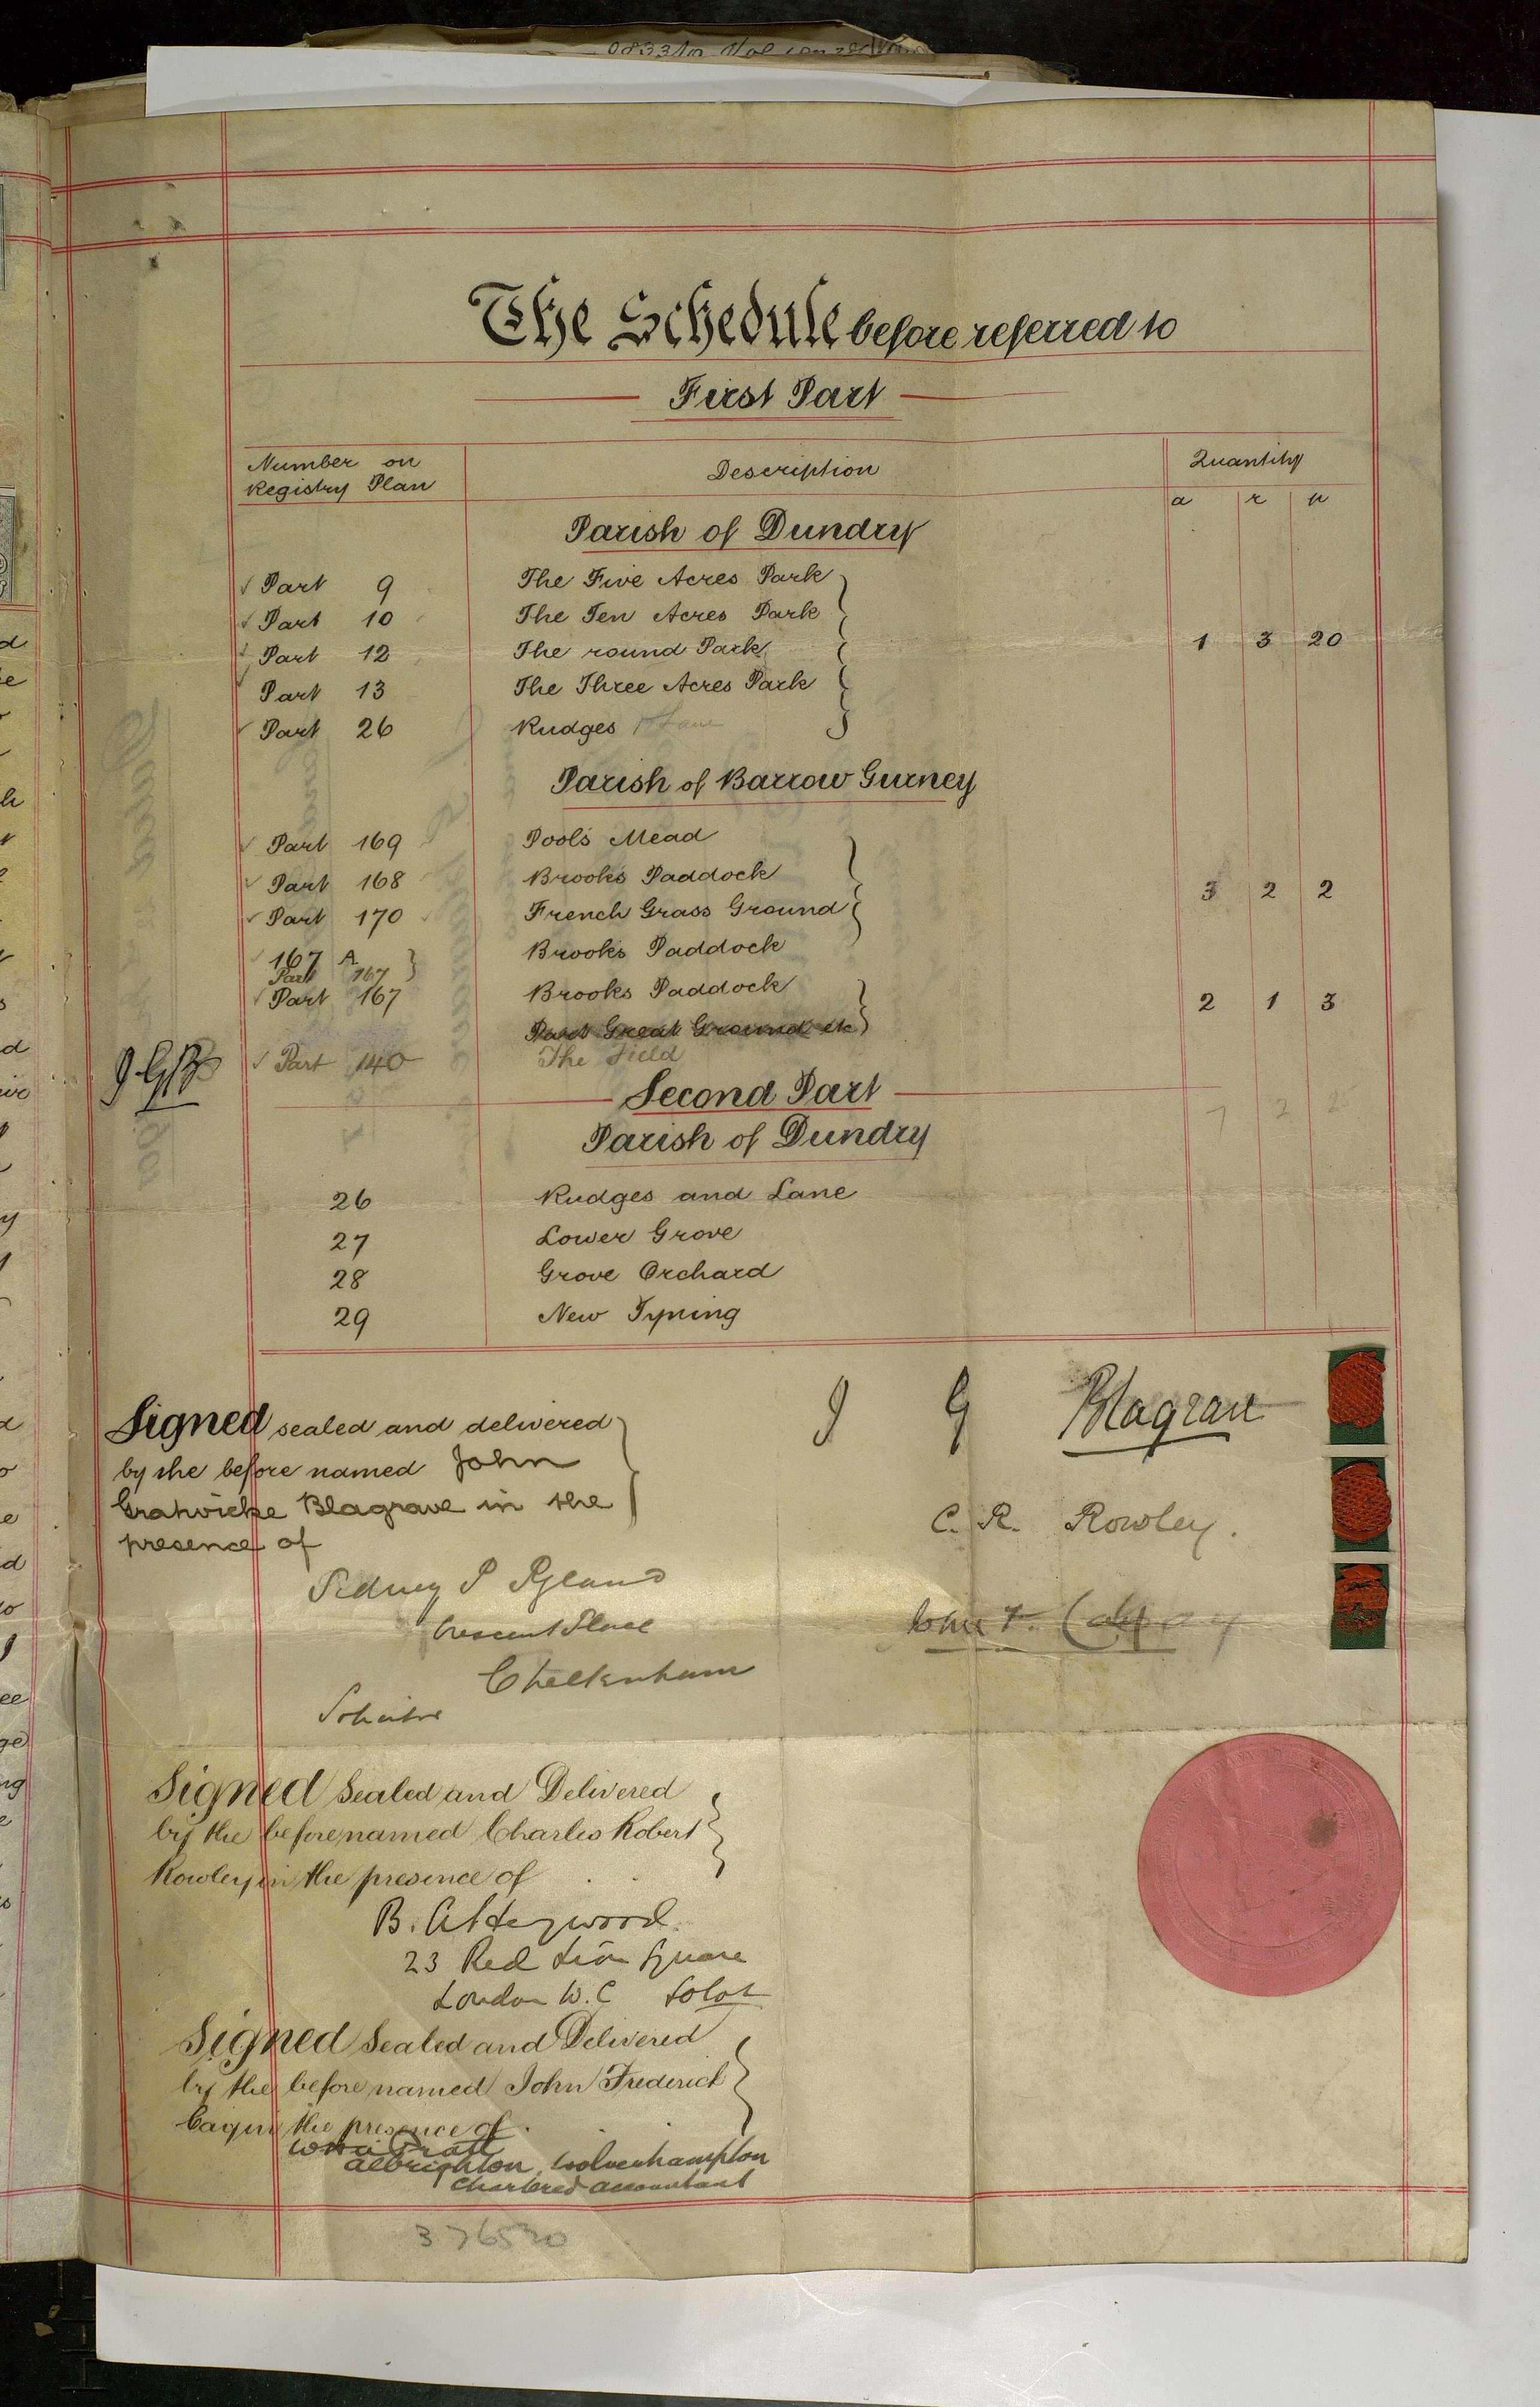 The Schedule before referred to
First Part
Number on Registry Plan Description Quantity
a r p
Parish of Dundry
Part 9 The Five Acres Park
Part 10 The Ten Acres Park
Part 12 The round Park 1 3 20
Part 13 The Three Acres Park
Part 26 Rudges
Parish of Barrow Gurney
Part 169 Pool's Mead
Part 168 Brook's Paddock
Part 170 French Grass Ground 3 2 2
167 A Brooks Paddock
Part 167
Part 167 Brooks Paddock 2 1 3
Part Great Ground etc
Part 140 The Field
J.G.B.
Second Part
7 2 25
Parish of Dundry
26 Rudges and Lane
27 Lower Grove
28 Grove Orchard
29 New Tyning
Signed sealed and delivered
by the before named John
Gratwicke Blagrave in the
presence of
J G Blagrave
C. R. Rowley.
Sidney P Ryland
Crescent Place
Cheltenham
Solicitor
Signed Sealed and Delivered
by the before named Charles Robert
Rowley in the presence of
B. A. Heywood
23 Red Lion Square
London W.C Solor
Signed Sealed and Delivered
by the before named John Frederick
in the presence of
Albrighton, Wolverhampton
Chartered Accountant
376520